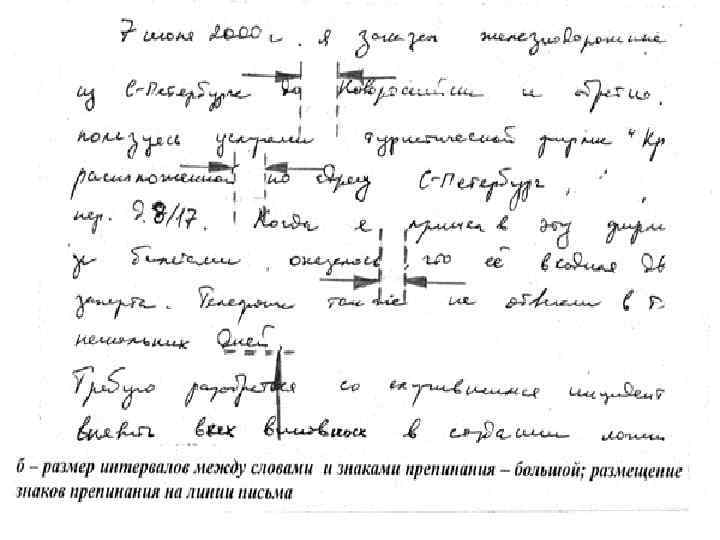 7 июня 2000 г. я заказал железнодорожные
из С-Петербурга до Новороссийска и обратно,
пользуясь услугами туристической фирмы "Кр
расположенной по адресу С-Петербург, , ,
пер. д. 8/17. Когда я пришел в эту фирм
за билетами, оказалось, что её входная дв
заперта. Телефоны также не отвечали в т.
нескольких дней.
Требую разобраться со случившимся инцидент
выявить всех виновных в создании
б – размер интервалов между словами и знаками препинания – большой; размещение
знаков препинания на линии письма